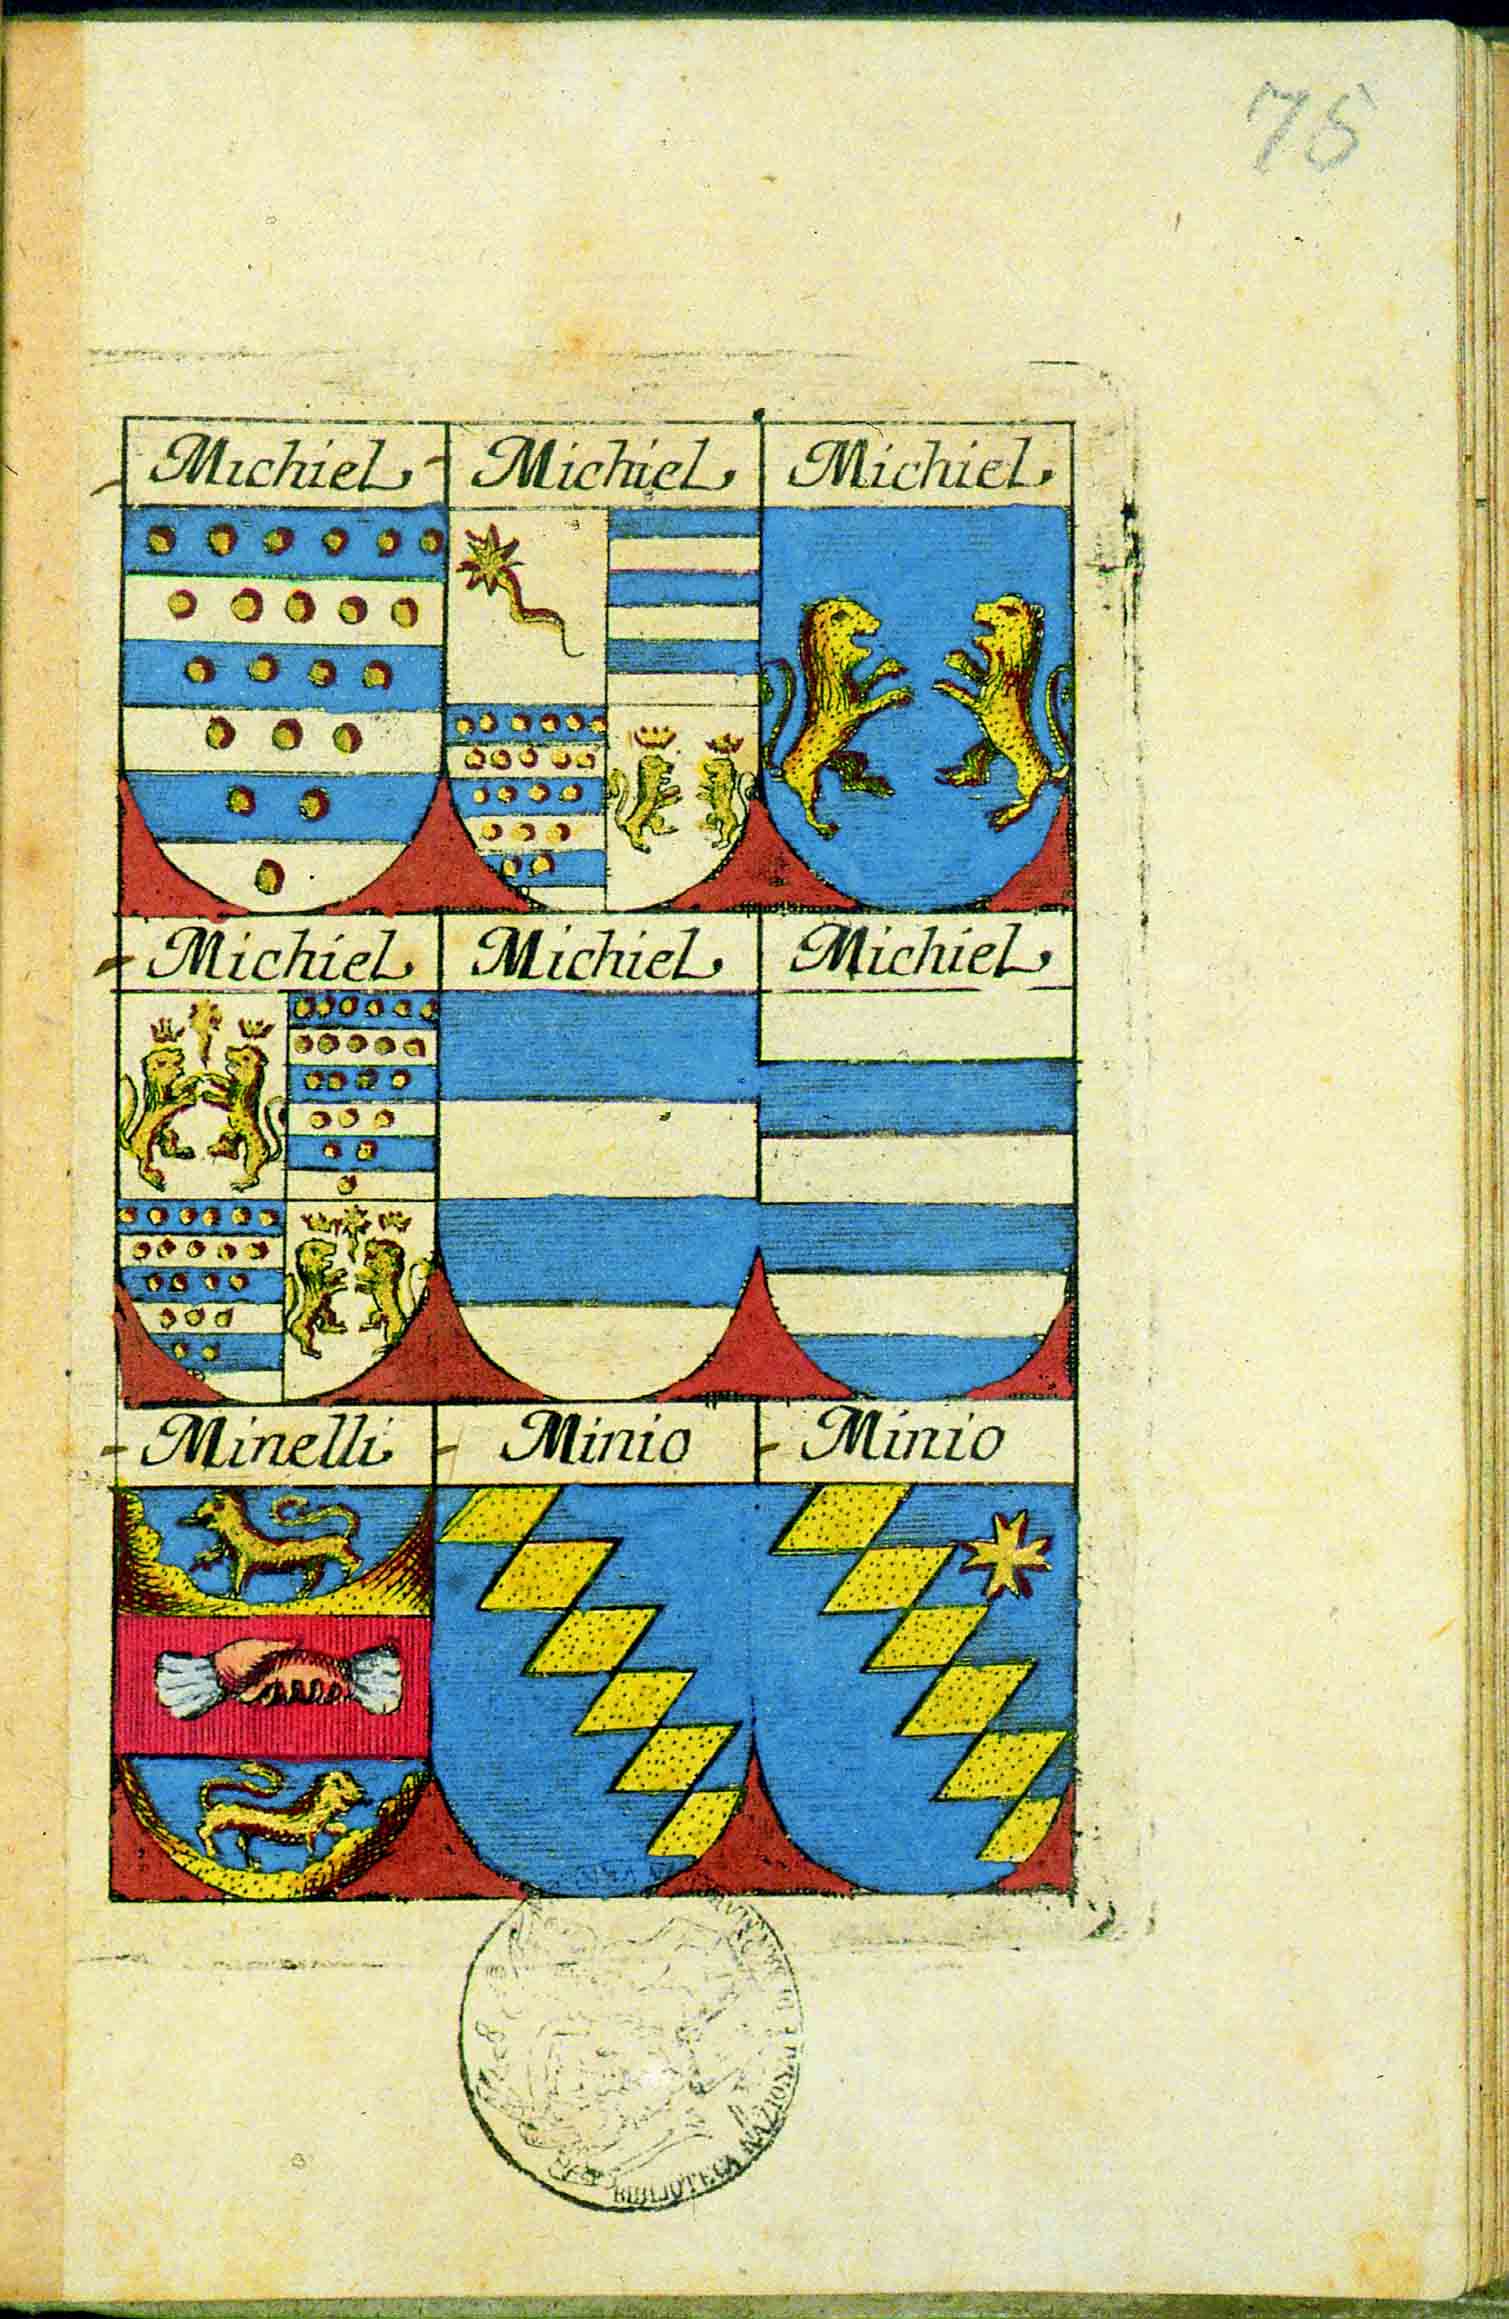 75
Michiel Michiel Michiel
Michiel Michiel Michiel
Minelli Minio Minio
BIBLIOTECA NAZIONALE